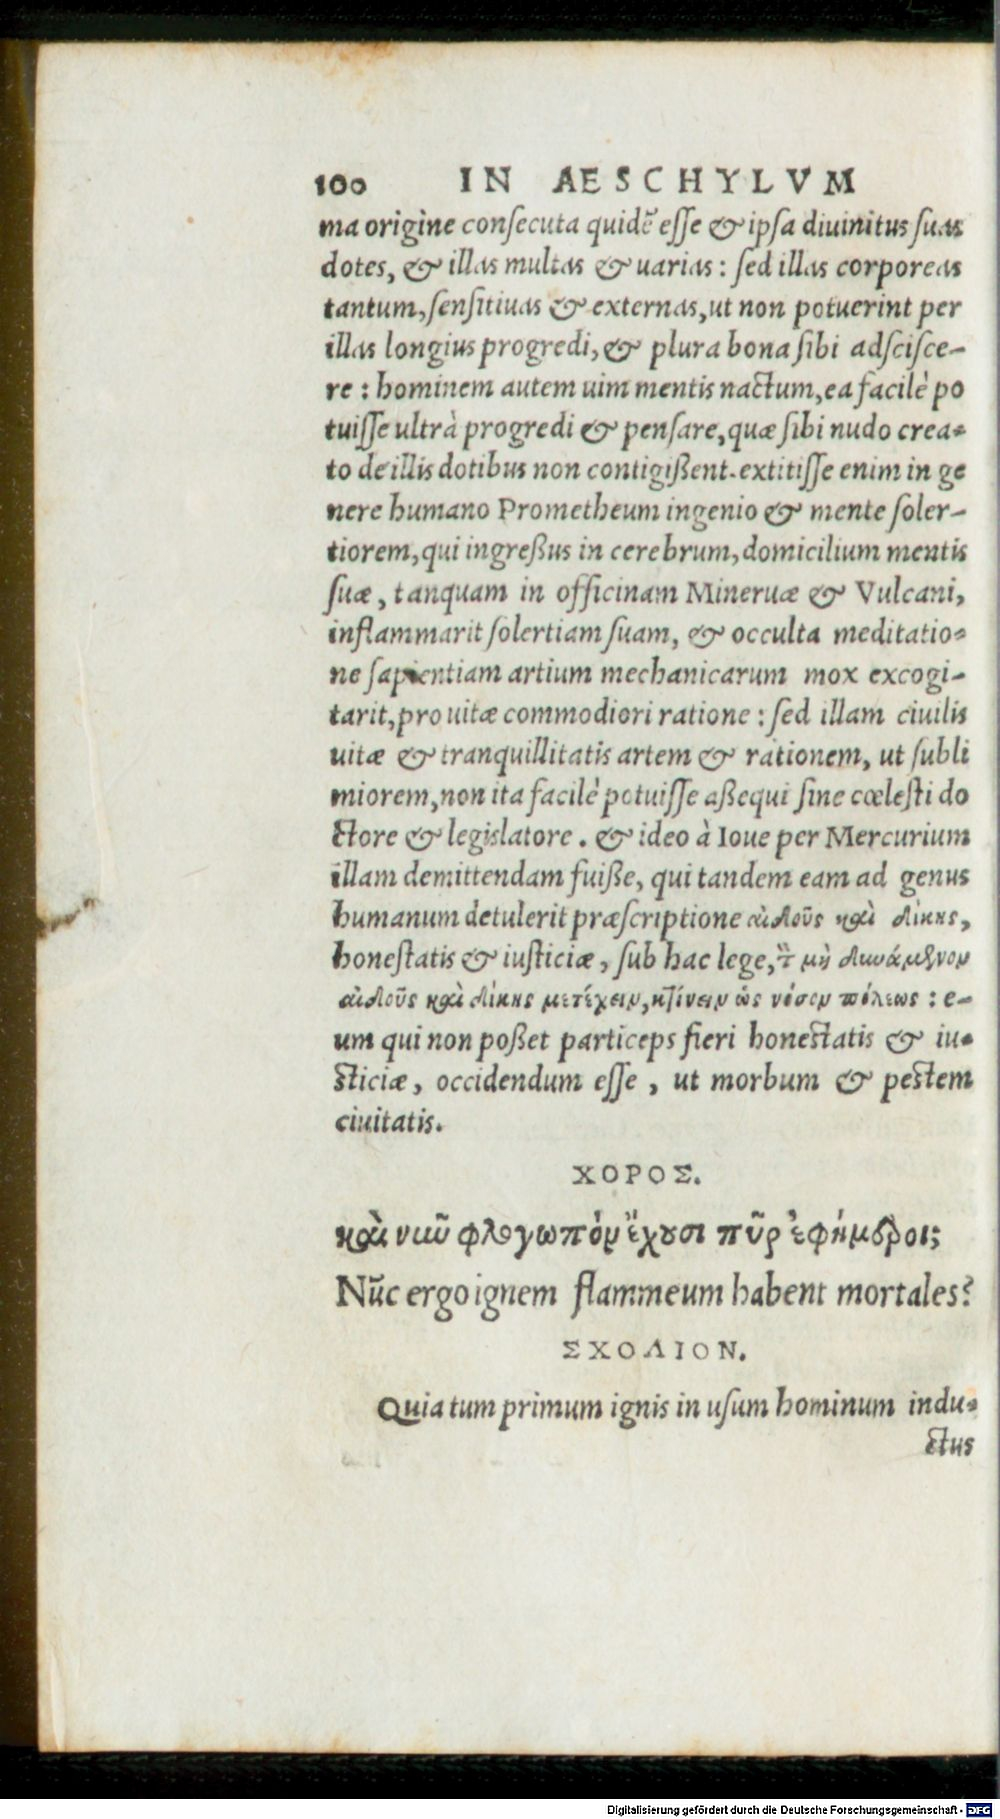 100 IN AESCHYLVM
ma origine consecuta quidẽ esse & ipsa diuinitus suas
dotes, & illas multas & uarias : sed illas corporeas
tantum, sensitiuas & externas, ut non potuerint per
illas longius progredi, & plura bona sibi adscisce-
re : hominem autem uim mentis nactum, ea facilè po
tuisse ultrà progredi & pensare, quæ sibi nudo crea-
to de illis dotibus non contigißent. extitisse enim in ge
nere humano Prometheum ingenio & mente soler-
tiorem, qui ingreßus in cerebrum, domicilium mentis
suæ, tanquam in officinam Mineruæ & Vulcani,
inflammarit solertiam suam, & occulta meditatio-
ne sapientiam artium mechanicarum mox excogi-
tarit, pro uitæ commodiori ratione : sed illam ciuilis
uitæ & tranquillitatis artem & rationem, ut subli
miorem, non ita facilè potuisse aßequi sine cœlesti do
ctore & legislatore. & ideo à Ioue per Mercurium
illam demittendam fuiße, qui tandem eam ad genus
humanum detulerit præscriptione αἰδοῦς καὶ δίκης,
honestatis & iusticiæ, sub hac lege, τ̀ μὴ δυνάμενον
αἰδοῦς καὶ δίκης μετέχειν, κτείνειν ὡς νόσον πόλεως : e-
um qui non poßet particeps fieri honestatis & iu-
sticiæ, occidendum esse, ut morbum & pestem
ciuitatis.
ΧΟΡΟΣ.
καὶ νιῦ φλογωπὸν ἔχουσι πῦρ ἐφήμεροι;
Nũc ergo ignem flammeum habent mortales?
ΣΧΟΛΙΟΝ.
Quia tum primum ignis in usum hominum indu-
ctus
Digitalisierung gefördert durch die Deutsche Forschungsgemeinschaft - DFG